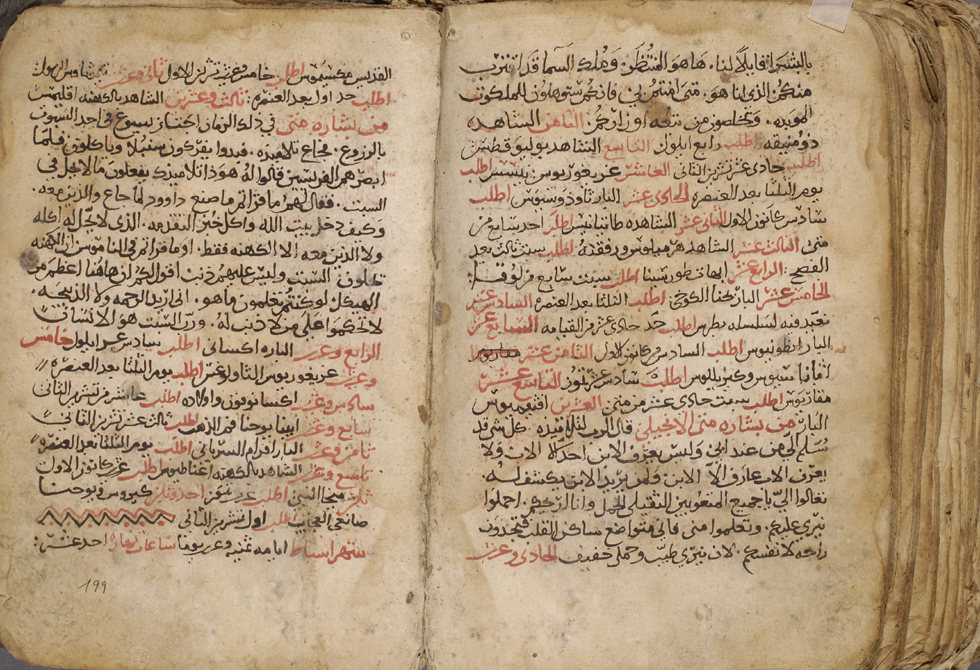 بالبشرا قايلا لنا. هاهو المنتظر وملك السما قد اقترب
منكم الذي انا هو. متى امنتم بي فانكم ستوهلون للملكوت
الموبده. وتخلصون من اوزاركم الثامن الشاهده
اطلب رابع ايلول التاسع الشاهد
اطلب حادي عشر تشرين الثاني العاشر غريغوريوس اطلب
يوم الثلثا بعد العنصره الحادي عشر البار تاودوسيوس اطلب
سادس كانون الاول الثاني عشر الشاهده طاتيانيس اطلب احد سابع عشر
متى الثالث عشر الشاهد ورفقته اطلب سبت ثالث بعد
الفصح: الرابع عشر ابهات طور سينا اطلب سبت سابع من لوقا:
الخامس عشر البار يحنا الكوخي: اطلب الثلثا بعد العنصره السادس عشر
نعيد فيه لسلسله بطرس اطلب حادي عشر من القيامه السابع عشر
البار انطونيوس اطلب السادس من كانون الاول الثامن عشر
اثاناسيوس وكيرللوس اطلب سادس عشر التاسع عشر
مقاريوس اطلب سبت حادي عشر من متى العشرين افتيميوس
البار من بشاره متى الانجيلي قال الرب لتلاميذه. كل شي قد
سلم الي من عند ابي وليس يعرف الابن احد الا الاب ولا
يعرف الاب عارف الا الابن. ولمن يريد الابن يكشف له.
تعالوا الي يا جميع المتعوبين الثقيلي الحمل وانا اريحكم. احملوا
نيري عليكم. وتعلموا مني فاني متواضع ساكن القلب فتجدون
راحه لانفسكم. لان نيري طيب وحملي خفيف الحادي وعشرين
القديس مكسيموس اطلب خامس وعشرين تشرين الاول ثاني وعشرين تيموثاوس الرسول
اطلب حد اول بعد العنصره: ثالث وعشرين الشاهد بالكهنه اقليمس
من بشاره متى في ذلك الزمان اجتاز يسوع في احد السبوت
بالزروع. فجاع تلاميذه. فبدوا يفركون سنبلا وياكلون فلما
ابصرهم الفريسيين قالوا له هوذا تلاميذك يفعلون ما لا يحل في
السبت. فقال لهم اما قراتم ما صنع داوود لما جاع والذين معه.
وكيف دخل بيت الله واكل خبز التقدمه. الذي لا يحل له اكله
ولا الذين معه الا الكهنه فقط. او ما قراتم في الناموس ان الكهنه
يحلون السبت وليس عليهم ذنب اقول لكم ان هاهنا اعظم من
الهيكل. لو كنتم تعلمون ما هو. اني اريد الرحمه ولا الذبيحه.
لا تحكموا على من لا ذنب له. ورب السبت هو الانسان
الرابع وعشرين الباره اكساني اطلب سادس عشر ايلول خامس
وعشرين غريغوريوس الثاولوغس اطلب يوم الثلثا بعد العنصره
سادس وعشرين اكسانوفون واولاده اطلب خامس من تشرين الثاني
سابع وعشرين ابينا يوحنا فم الذهب اطلب ثالث عشر تشرين الثاني
ثامن وعشرين البار افرام السرياني اطلب يوم الثلثا بعد العنصره
تاسع وعشرين الشاهد بالكهنه اغناطيوس اطلب عشرين كانون الاول
ثلثين اطلب احد وثلثين كيروس ويوحنا
صانعي العجايب اطلب اول تشرين الثاني
شهر اسباط ايامه ثمنيه وعشرين يوما ساعات نهاره احد عشر:
199